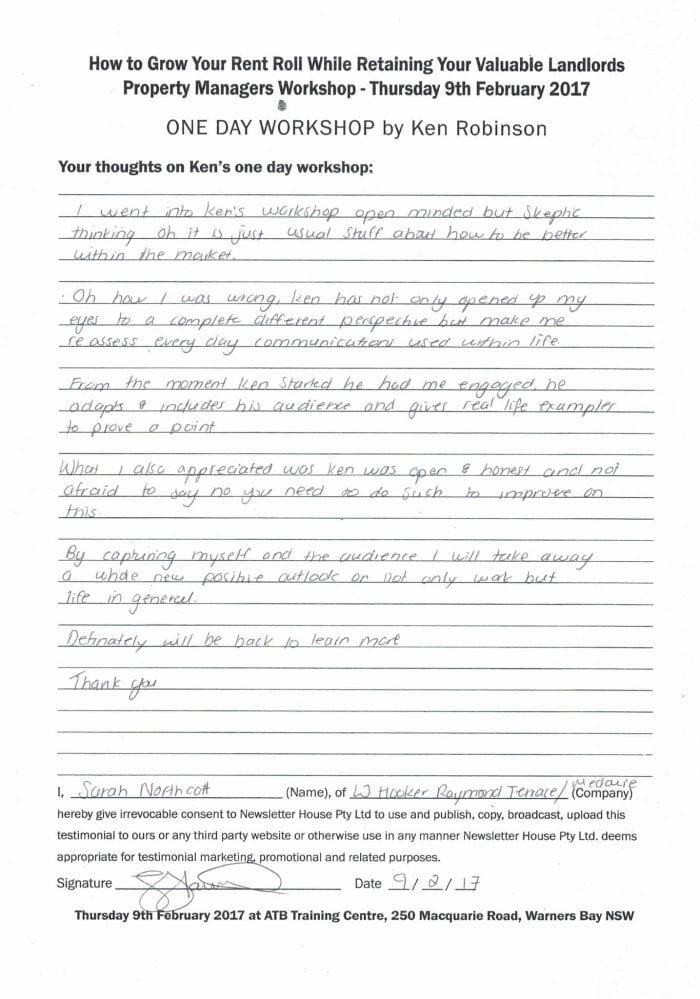 How to Grow Your Rent Roll While Retaining Your Valuable Landlords
Property Managers Workshop - Thursday 9th February 2017
ONE DAY WORKSHOP by Ken Robinson
Your thoughts on Ken's one day workshop:
I went into Ken's workshop open minded but Skeptic
thinking oh it is just usual stuff about how to be better
within the market.
Oh how I was wrong, Ken has not only opened up my
eyes to a complete different perspective but make me
re assess every day communications used within life.
From the moment Ken started he had me engaged, he
adapts & includes his audience and gives real life examples
to prove a point
What I also appreciated was Ken was open & honest and not
afraid to say no you need to do such to improve on
this.
By capturing myself and the audience I will take away
a whole new positive outlook or not only work but
life in general.
Definately will be back to learn more
Thank you
I, Sarah Northcott (Name), of LJ Hooker Raymond Terrace/ Medowie (Company)
hereby give irrevocable consent to Newsletter House Pty Ltd to use and publish, copy, broadcast, upload this
testimonial to ours or any third party website or otherwise use in any manner Newsletter House Pty Ltd. deems
appropriate for testimonial marketing, promotional and related purposes.
Signature Date 9/2/17
Thursday 9th February 2017 at ATB Training Centre, 250 Macquarie Road, Warners Bay NSW